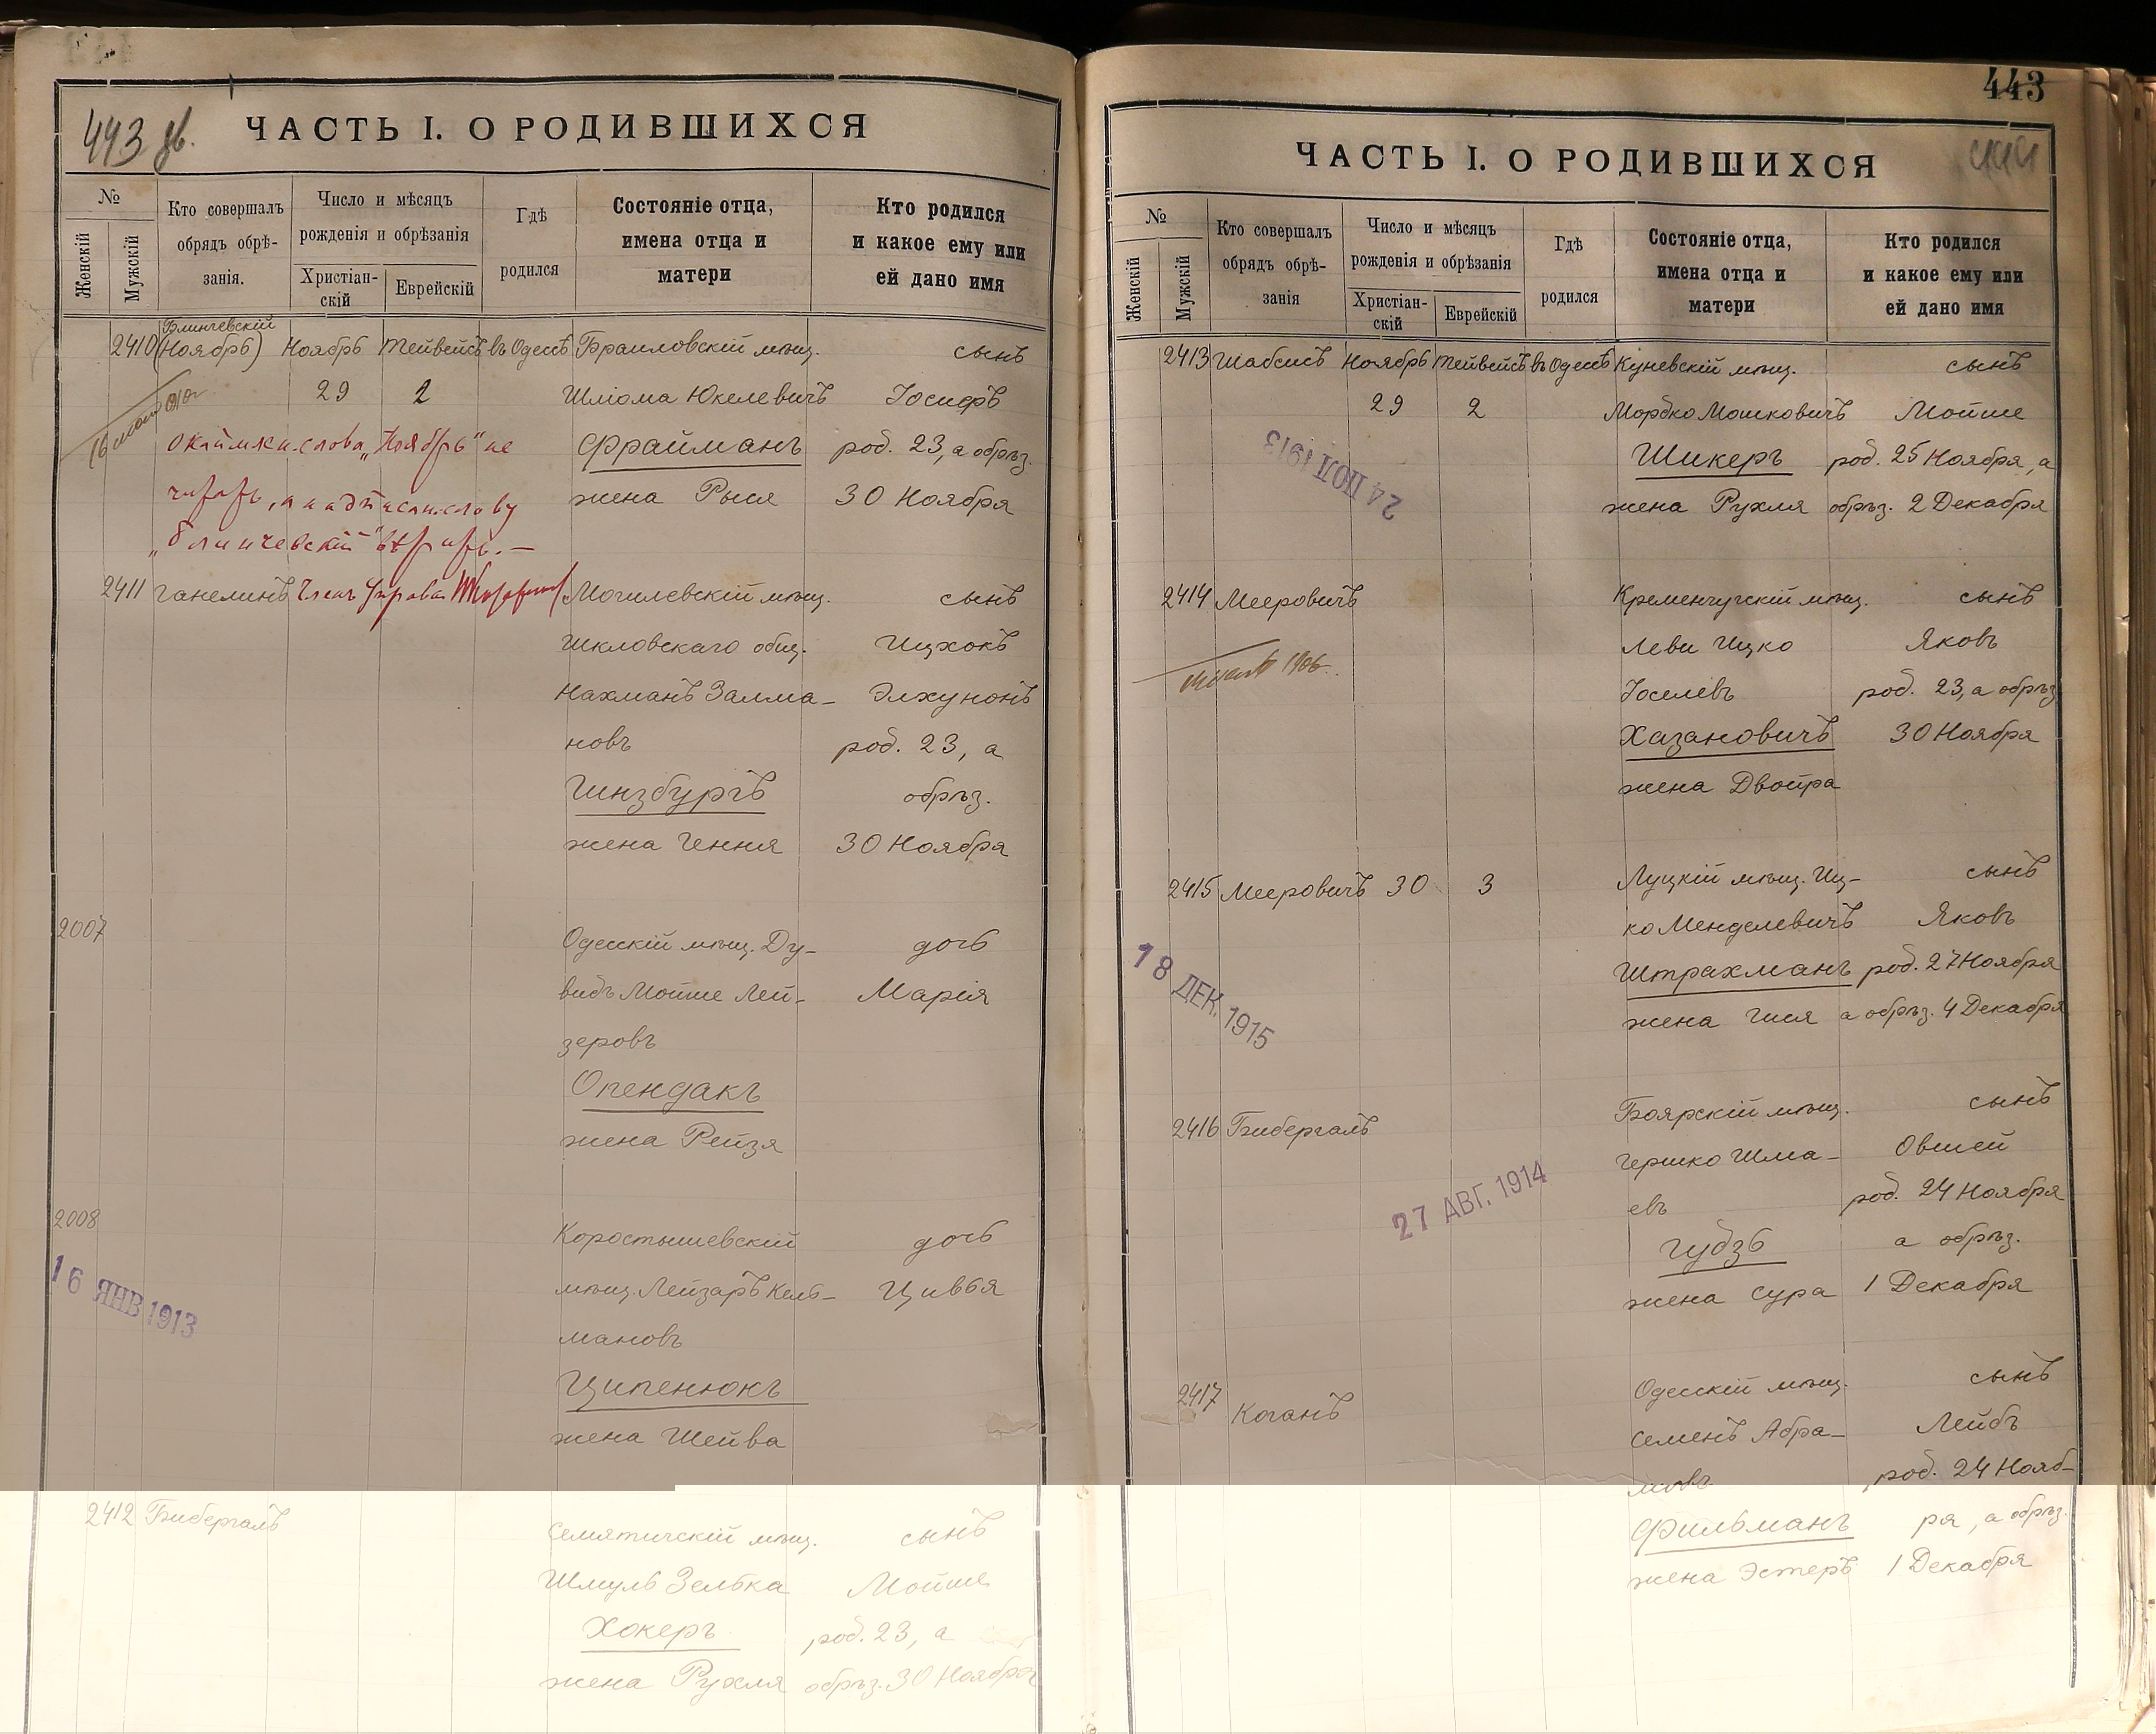 443 дв.
ЧАСТЬ I. О РОДИВШИХСЯ
№
Женскій
Мужскій
Кто совершалъ
обрядъ обрѣ-
занія.
Число и мѣсяцъ
рожденія и обрѣзанія
Христіан-
скій
Еврейскій
Гдѣ
родился
Состояніе отца,
имена отца и
матери
Кто родился
и какое ему или
ей дано имя
Блинчевскій
2410 (Ноябрь) Ноябрь Тейвейсъ въ Одессѣ Браиловскій мѣщ. сынъ
29 2 Шлiома Юкелевичъ Іосифъ
Фрайманъ род. 23, а обрѣз.
жена Рыся 30 Ноября
слова „Ноябрь" не
„Блинчевскій" вѣрить. —
2411 Ганелинъ Членъ Управы Могилевскій мѣщ. сынъ
Шкловскаго общ. Ицхокъ
Нахманъ Залма- Элхунонъ
новъ род. 23, а
Гинзбургъ обрѣз.
жена Гення 30 Ноября
2007 Одесскій мѣщ. Ду- дочь
видъ Мойше Лей- Марія
зеровъ
Опендакъ
жена Рейзя
2008 Коростышевскій дочь
мѣщ. Лейзаръ Кель- Цивья
мановъ
16 ЯНВ 1913
Ципенюкъ
жена Шейва
2412 Бибергалъ Семятичскій мѣщ. сынъ
Шмуль Зелька Мойше
Хокеръ род. 23, а
жена Рухля обрѣз. 30 Ноября
443
444
ЧАСТЬ I. О РОДИВШИХСЯ
№
Женскій
Мужскій
Кто совершалъ
обрядъ обрѣ-
занія
Число и мѣсяцъ
рожденія и обрѣзанія
Христіан-
скій
Еврейскій
Гдѣ
родился
Состояніе отца,
имена отца и
матери
Кто родился
и какое ему или
ей дано имя
2413 Шабсисъ Ноябрь Тейвейсъ въ Одессѣ Куневскій мѣщ. сынъ
29 2 Мордко Мошковичъ Мойше
Шикеръ род. 25 Ноября, а
жена Рухля обрѣз. 2 Декабря
1913
2414 Мееровичъ Кременчугскій мѣщ. сынъ
Леви Ицко Яковъ
1906
Іоселевъ род. 23, а обрѣз
Хазановичъ 30 Ноября
жена Двойра
2415 Мееровичъ 30 3 Луцкій мѣщ. Иц- сынъ
ко Менделевичъ Яковъ
Штрахманъ род. 27 Ноября
жена Гися а обрѣз. 4 Декабря
18 ДЕК. 1915
2416 Бибергалъ Боярскій мѣщ. сынъ
Гершко Шма- Овшей
евъ род. 24 Ноября
27 АВГ. 1914
Гудзь а обрѣз.
жена Сура 1 Декабря
2417 Коганъ Одесскій мѣщ. сынъ
Семенъ Абра- Лейбъ
мовъ род. 24 Нояб-
Фильманъ ря, а обрѣз.
жена Эстеръ 1 Декабря